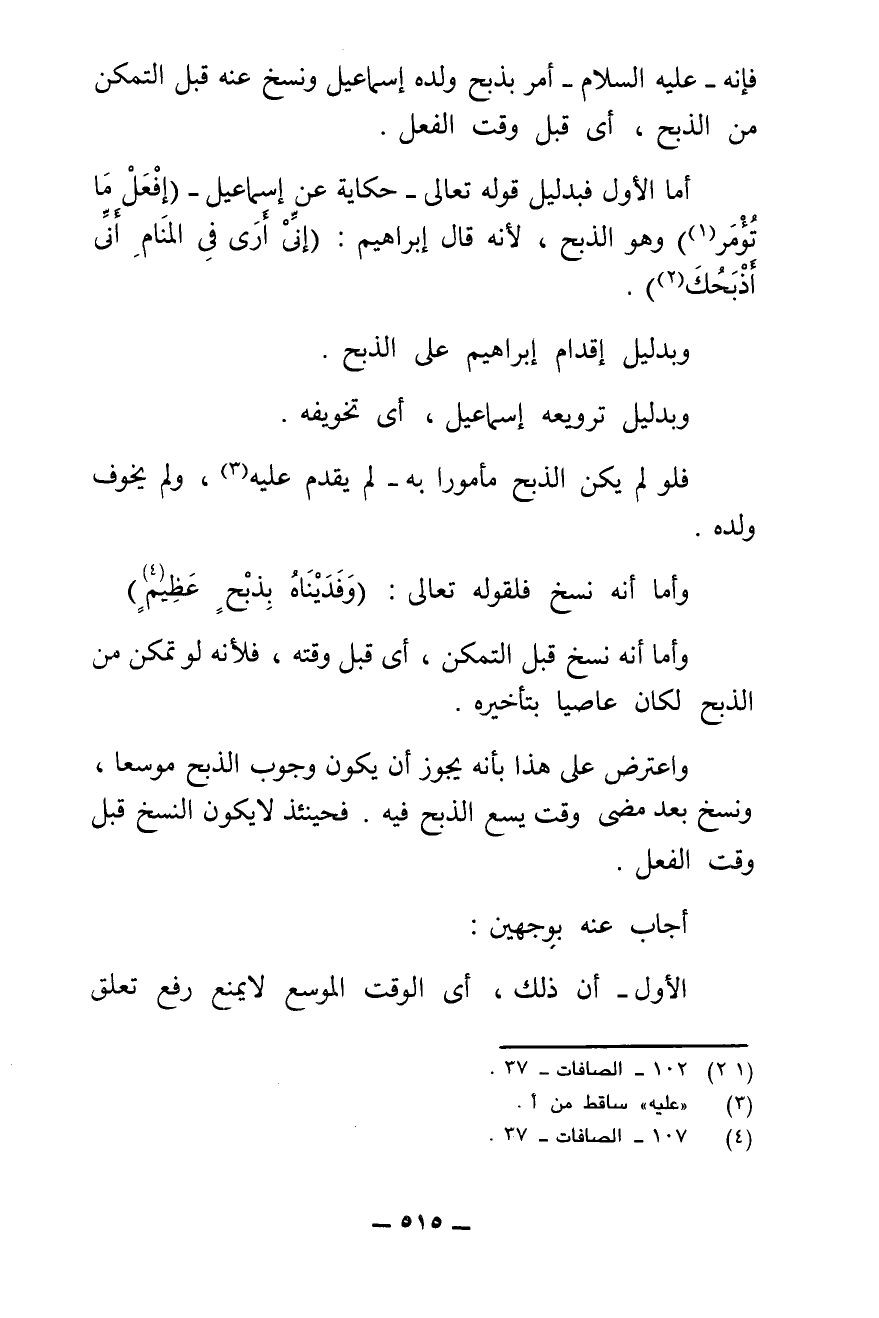 فإنه ـ عليه السلام ـ أمر بذبح ولده إسماعيل ونسخ عنه قبل التمكن
من الذبح ، أى قبل وقت الفعل .
أما الأول فبدليل قوله تعالى ـ حكاية عن إسماعيل ـ (إفْعَلْ مَا
تُؤْمَر(١)) وهو الذبح ، لأنه قال إبراهيم : (إنِّىْ أَرَى فِى المَنَامِ أَنِّى
أَذْبَحُكَ(٢)) .
وبدليل إقدام إبراهيم على الذبح .
وبدليل ترويعه إسماعيل ، أى تخويفه .
فلو لم يكن الذبح مأمورا به ـ لم يقدم عليه(٣) ، ولم يخوف
ولده .
وأما أنه نسخ فلقوله تعالى : (وَفَدَيْنَاهُ بِذبْحٍ عَظِيْمٍ(٤))
وأما أنه نسخ قبل التمكن ، أى قبل وقته ، فلأنه لو تمكن من
الذبح لكان عاصيا بتأخيره .
واعترض على هذا بأنه يجوز أن يكون وجوب الذبح موسعا ،
ونسخ بعد مضى وقت يسع الذبح فيه . فحينئذ لايكون النسخ قبل
وقت الفعل .
أجاب عنه بوجهين :
الأول ـ أن ذلك ، أى الوقت الموسع لايمنع رفع تعلق
(١ ٢) ١٠٢ ـ الصافات ـ ٣٧ .
(٣) «عليه» ساقط من أ .
(٤) ١٠٧ ـ الصافات ـ ٣٧ .
ـ ٥١٥ ـ